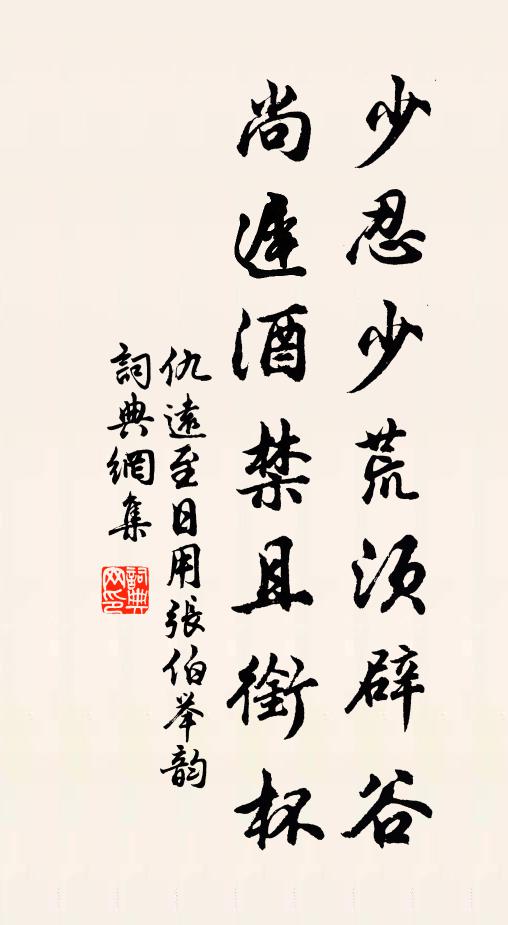 少忍少荒須辟谷
尚遲酒禁且銜杯
仇遠至日用張伯举韵
詞典網集
詞典網印